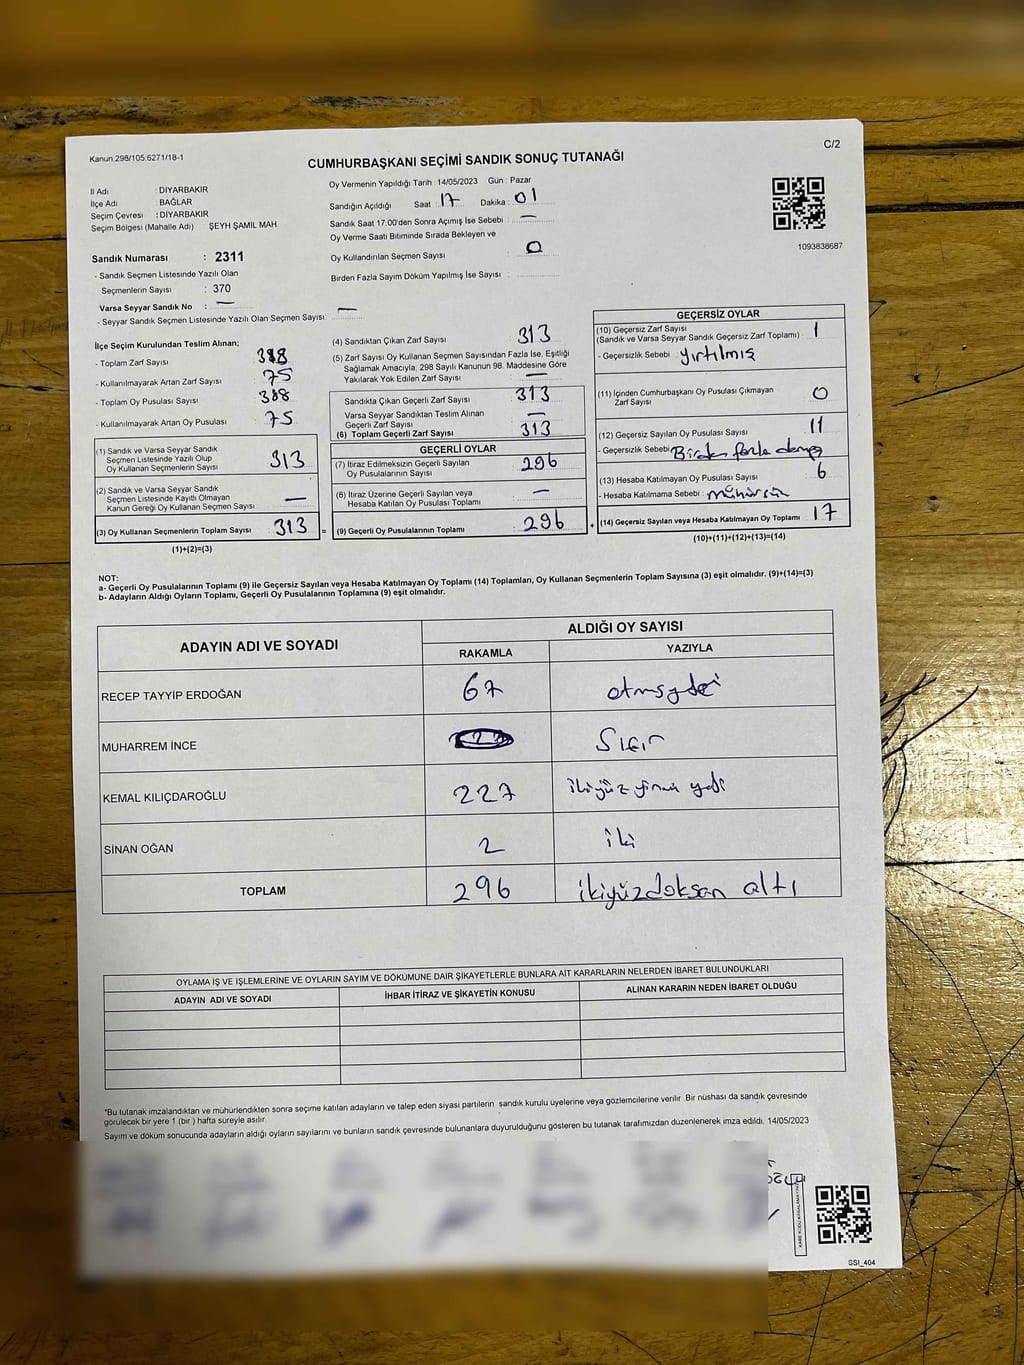 Kanun.298/105.6271/18-1
C/2
CUMHURBAŞKANI SEÇİMİ SANDIK SONUÇ TUTANAĞI
İl Adı : DİYARBAKIR
İlçe Adı : BAĞLAR
Seçim Çevresi : DİYARBAKIR
Seçim Bölgesi (Mahalle Adı) ŞEYH ŞAMİL MAH
Oy Vermenin Yapıldığı Tarih : 14/05/2023 Gün : Pazar
Sandığın Açıldığı Saat : 17 Dakika : 01
Sandık Saat 17.00'den Sonra Açımış İse Sebebi : —
Oy Verme Saati Bitiminde Sırada Bekleyen ve
Oy Kullandırılan Seçmen Sayısı 0
Birden Fazla Sayım Döküm Yapılmış İse Sayısı :
1093838687
Sandık Numarası : 2311
- Sandık Seçmen Listesinde Yazılı Olan
Seçmenlerin Sayısı : 370
Varsa Seyyar Sandık No : —
- Seyyar Sandık Seçmen Listesinde Yazılı Olan Seçmen Sayısı : —
İlçe Seçim Kurulundan Teslim Alınan;
- Toplam Zarf Sayısı 388
- Kullanılmayarak Artan Zarf Sayısı 75
- Toplam Oy Pusulası Sayısı 388
- Kullanılmayarak Artan Oy Pusulası 75
(1) Sandık ve Varsa Seyyar Sandık
Seçmen Listesinde Yazılı Olup
Oy Kullanan Seçmenlerin Sayısı 313
(2) Sandık ve Varsa Seyyar Sandık
Seçmen Listesinde Kayıtlı Olmayan
Kanun Gereği Oy Kullanan Seçmen Sayısı —
(3) Oy Kullanan Seçmenlerin Toplam Sayısı 313 =
(1)+(2)=(3)
(4) Sandıktan Çıkan Zarf Sayısı 313
(5) Zarf Sayısı Oy Kullanan Seçmen Sayısından Fazla İse, Eşitliği
Sağlamak Amacıyla; 298 Sayılı Kanunun 98. Maddesine Göre
Yakılarak Yok Edilen Zarf Sayısı —
Sandıkta Çıkan Geçerli Zarf Sayısı 313
Varsa Seyyar Sandıktan Teslim Alınan
Geçerli Zarf Sayısı —
(6) Toplam Geçerli Zarf Sayısı 313
GEÇERLİ OYLAR
(7) İtiraz Edilmeksizin Geçerli Sayılan
Oy Pusulalarının Sayısı 296
(8) İtiraz Üzerine Geçerli Sayılan veya
Hesaba Katılan Oy Pusulası Toplamı —
(9) Geçerli Oy Pusulalarının Toplamı 296 +
GEÇERSİZ OYLAR
(10) Geçersiz Zarf Sayısı
(Sandık ve Varsa Seyyar Sandık Geçersiz Zarf Toplamı) 1
- Geçersizlik Sebebi : yırtılmış
(11) İçinden Cumhurbaşkanı Oy Pusulası Çıkmayan
Zarf Sayısı 0
(12) Geçersiz Sayılan Oy Pusulası Sayısı 11
- Geçersizlik Sebebi : Birden fazla
(13) Hesaba Katılmayan Oy Pusulası Sayısı 6
- Hesaba Katılmama Sebebi : mühürsüz
(14) Geçersiz Sayılan veya Hesaba Katılmayan Oy Toplamı 17
(10)+(11)+(12)+(13)=(14)
NOT:
a- Geçerli Oy Pusulalarının Toplamı (9) ile Geçersiz Sayılan veya Hesaba Katılmayan Oy Toplamı (14) Toplamları, Oy Kullanan Seçmenlerin Toplam Sayısına (3) eşit olmalıdır. (9)+(14)=(3)
b- Adayların Aldığı Oyların Toplamı, Geçerli Oy Pusulalarının Toplamına (9) eşit olmalıdır.
ADAYIN ADI VE SOYADI
ALDIĞI OY SAYISI
RAKAMLA
YAZIYLA
RECEP TAYYİP ERDOĞAN 67 atmışyedi
MUHARREM İNCE Sıfır
KEMAL KILIÇDAROĞLU 227 ikiyüzyirmi yedi
SİNAN OĞAN 2 iki
TOPLAM 296 ikiyüzdoksan altı
OYLAMA İŞ VE İŞLEMLERİNE VE OYLARIN SAYIM VE DÖKÜMÜNE DAİR ŞİKAYETLERLE BUNLARA AİT KARARLARIN NELERDEN İBARET BULUNDUKLARI
ADAYIN ADI VE SOYADI
İHBAR İTİRAZ VE ŞİKAYETİN KONUSU
ALINAN KARARIN NEDEN İBARET OLDUĞU
*Bu tutanak imzalandıktan ve mühürlendikten sonra seçime katılan adayların ve talep eden siyasi partilerin sandık kurulu üyelerine veya gözlemcilerine verilir. Bir nüshası da sandık çevresinde
görülecek bir yere 1 (bir ) hafta süreyle asılır.
Sayım ve döküm sonucunda adayların aldığı oyların sayılarını ve bunların sandık çevresinde bulunanlara duyurulduğunu gösteren bu tutanak tarafımızdan düzenlenerek imza edildi. 14/05/2023
SSI_404